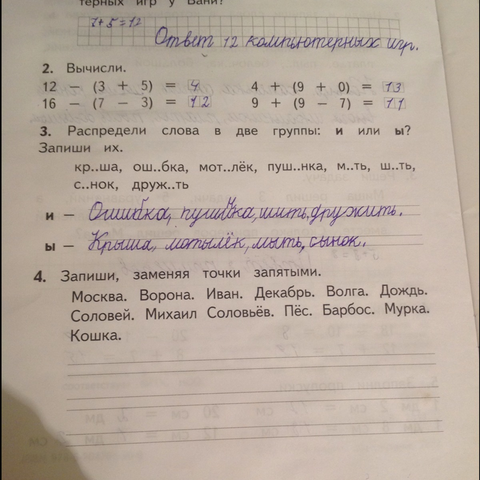 терных игр у Вани?
7+5=12
Ответ 12 компьютерных игр.
2. Вычисли.
12 − (3 + 5) = 4 4 + (9 + 0) = 13
16 − (7 − 3) = 12 9 + (9 − 7) = 11
3. Распредели слова в две группы: и или ы?
Запиши их.
кр..ша, ош..бка, мот..лёк, пуш..нка, м..ть, ш..ть,
с..нок, друж..ть
и – Ошибка, пушинка, шить, дружить.
ы – Крыша, мотылёк, мыть, сынок.
4. Запиши, заменяя точки запятыми.
Москва. Ворона. Иван. Декабрь. Волга. Дождь.
Соловей. Михаил Соловьёв. Пёс. Барбос. Мурка.
Кошка.